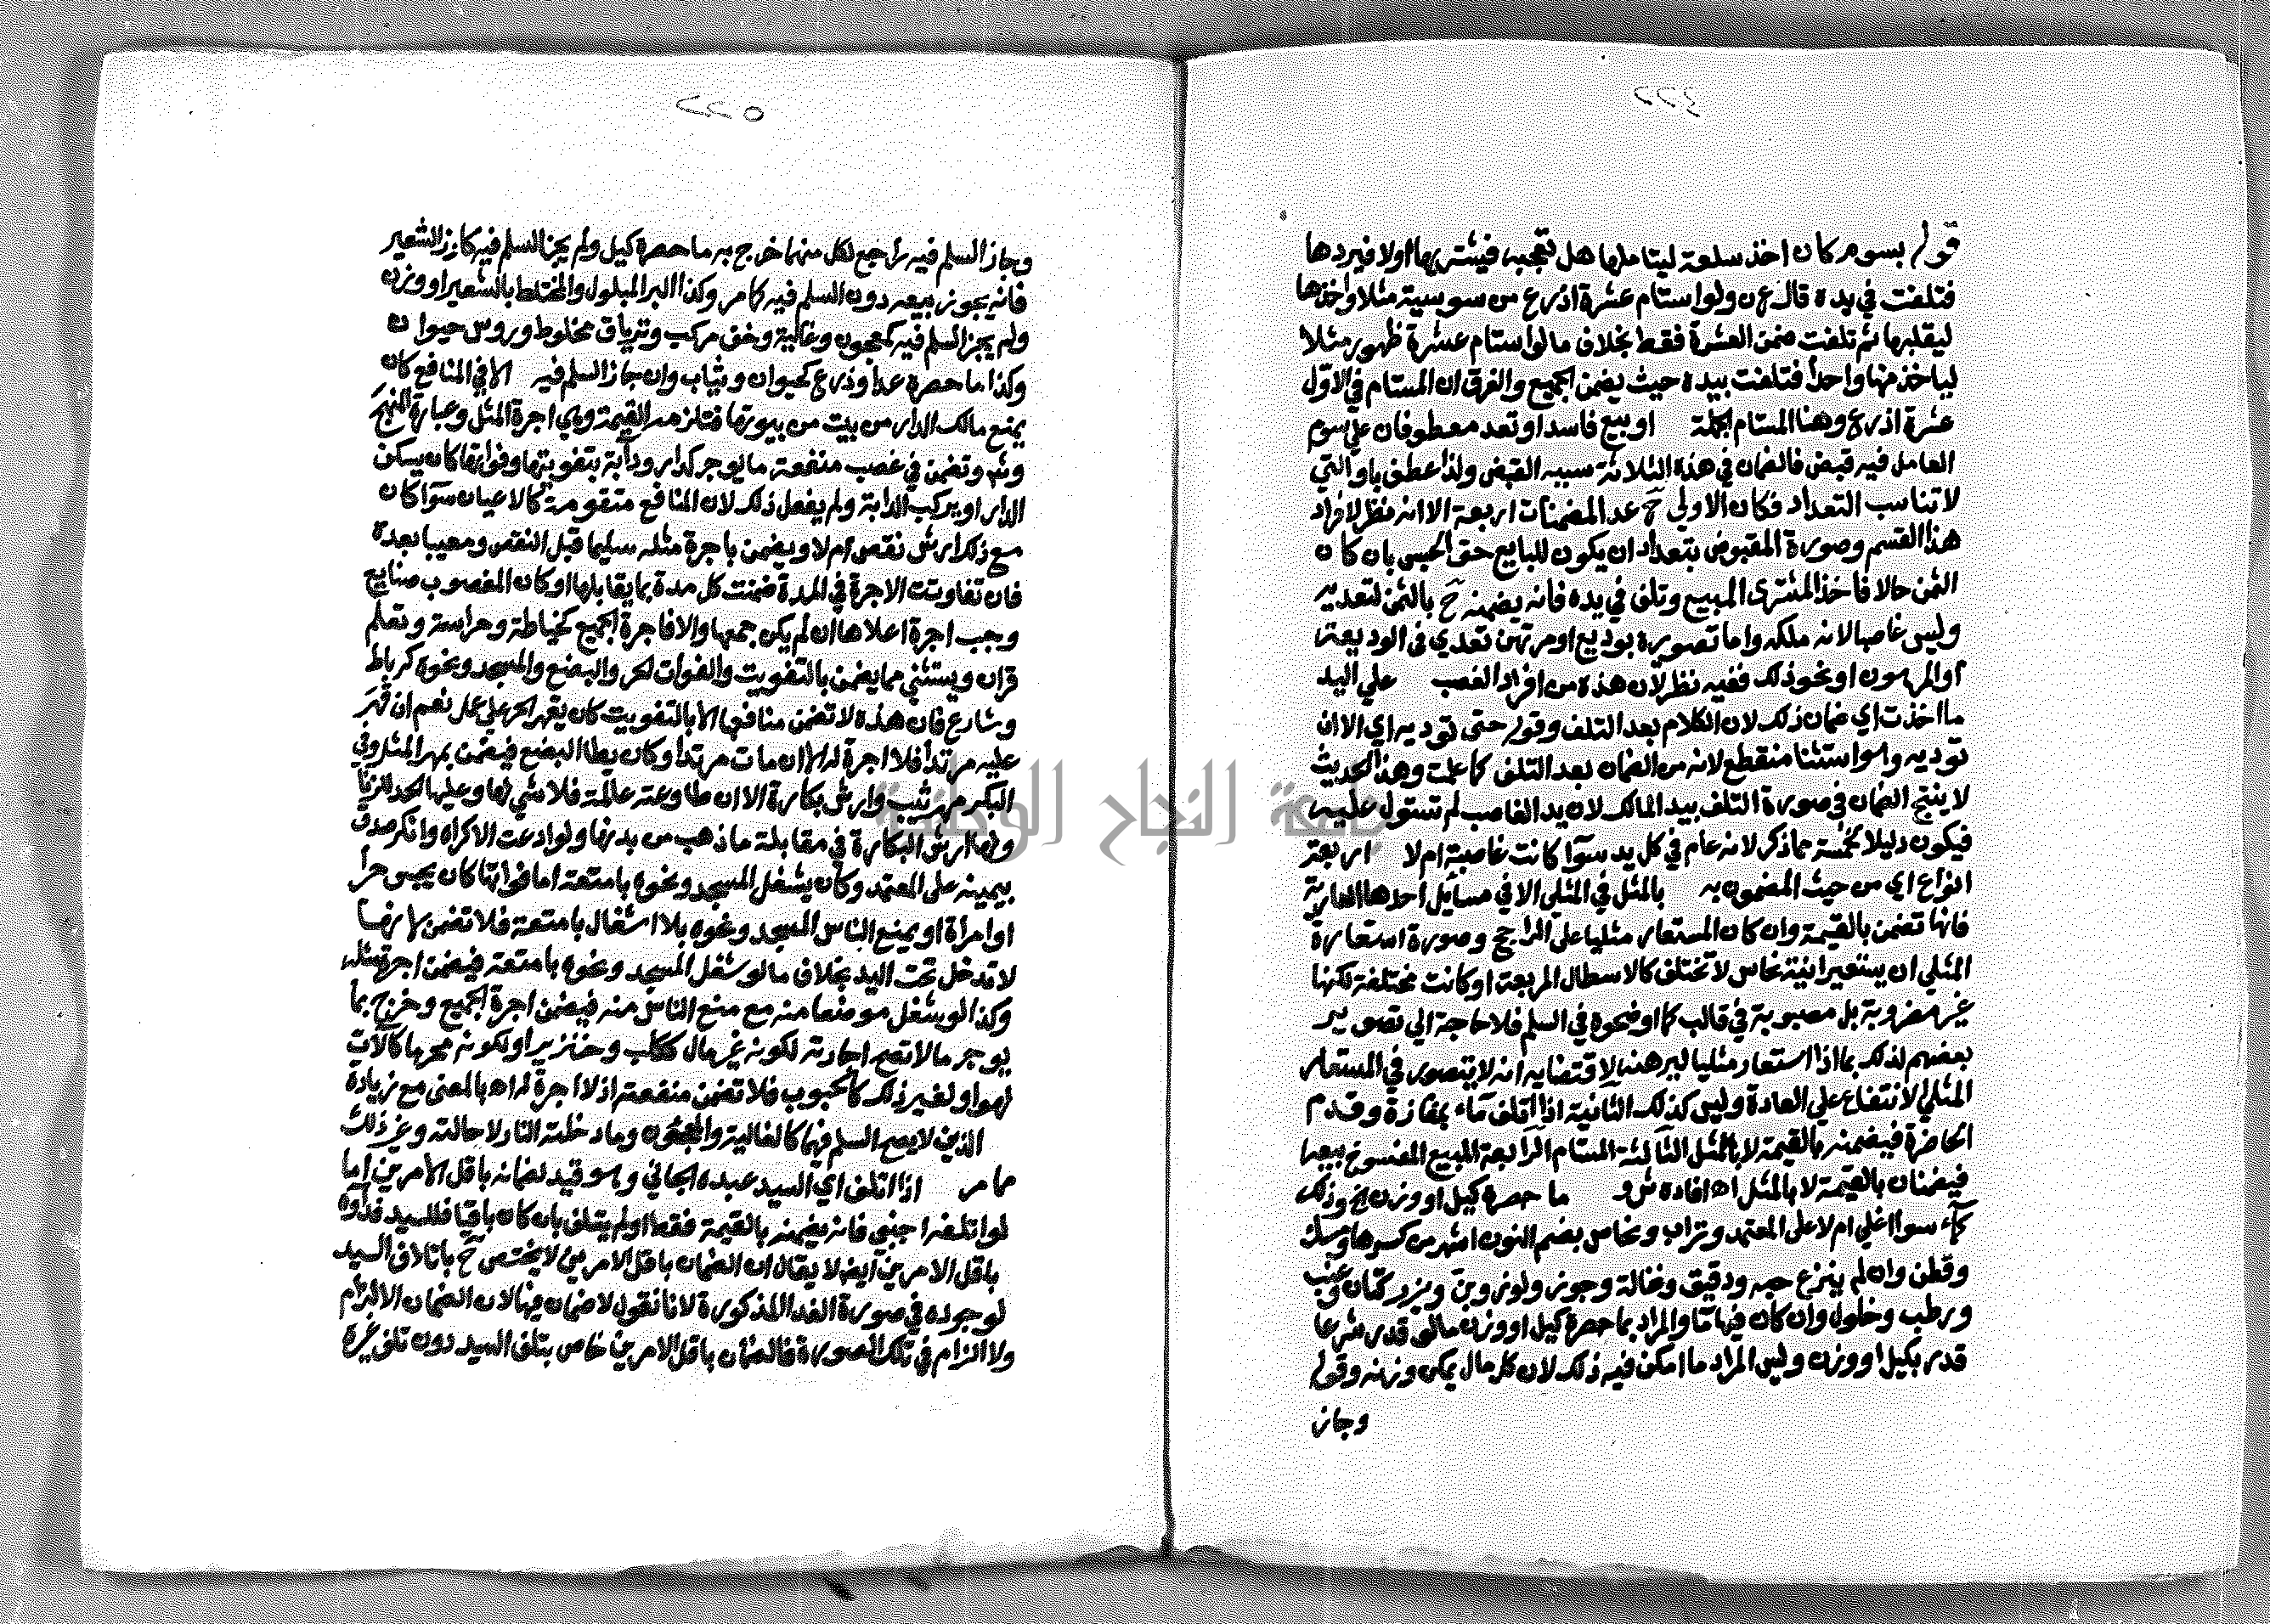 ٢٢٤
قوله بسوم كان اخذ سلعة ليتاملها هل تعجبه فيشتريها اولا فيردها
فتلفت في يده قال ع ن ولو استام عشرة اذرع من سوسية مثلا واخذها
ليقلبها ثم تلفت ضمن العشرة فقط بخلاف ما لو استام عشرة ظهور مثلا
لياخذ منها واحدا فتلفت بيده حيث يضمن الجميع والفرق ان المستام في الاول
عشرة اذرع وهنا المستام الجملة او بيع فاسد او تعد معطوفان علي سوم
العامل فيه قبض فالضمان في هذه الثلاثة سببه القبض ولذا عطف باو التي
لا تناسب التعداد فكان الاولي ح عد المضمنات اربعة الا انه نظر لافراد
هذا القسم وصورة المقبوض بتعد ان يكون للبايع حق الحبس بان كان
الثمن حالا فاخذ المشتري المبيع وتلف في يده فانه يضمنه ح بالثمن لتعديه
وليس غاصبا لانه ملكه واما تصويره بوديع او مرتهن تعدي في الوديعة
او المرهون او نحو ذلك ففيه نظر لان هذه من افراد الغصب علي اليد
ما اخذت اي ضمان ذلك لان الكلام بعد التلف وقوله حتي توديه اي الا ان
توديه وهو استثنا منقطع لانه من الضمان بعد التلف كما علمت وهذا الحديث
لا ينتج الضمان في صورة التلف بيد المالك لان يد الغاصب لم تستول عليه
فيكون دليلا لخمسة مما ذكر لانه عام في كل يد سوآ كانت غاصبة ام لا اربعة
انواع اي من حيث المضمون به بالمثل في المثلي الا في مسايل احدها العارية
فانها تضمن بالقيمة وان كان المستعار مثليا علي الراجح وصورة استعارة
المثلي ان يستعير انية نحاس لا تختلف كالاسطال المربعة او كانت مختلفة لكنها
غير مضروبة بل مصبوبة في قالب كما اوضحوه في السلم فلا حاجة الي تصوير
بعضهم لذلك بما اذا استعار مثليا ليرهنه لاقتضايه انه لا يتصور في المستعار
المثلي لانتفاع علي العادة وليس كذلك الثانية اذا اتلف مآء بمفازة وقدم
الحاضرة فيضمنه بالقيمة لا بالمثل الثالثة المستام الرابعة المبيع المفسوخ بيعه
فيضمنان بالقيمة لا بالمثل اه افاده ش و ما حصره كيل او وزن الخ وذلك
كمآء سوا اغلي ام لا علي المعتمد وتراب ونحاس بضم النون اشهر من كسرها ومسك
وقطن وان لم ينزع حبه ودقيق ونخالة وجوز ولوز وبن وبزر كتان وعنب
ورطب وخلول وان كان فيها مآ والمراد بما حصره كيل او وزن ما لو قدر شرعا
قدر بكيل او وزن وليس المراد ما امكن فيه ذلك لان كل مال يمكن وزنه وقوله
وجاز
٢٢٥
وجاز السلم فيه راجع لكل منهما خرج به ما حصره كيل ولم يجز السلم فيه كارز الشعير
فانه يجوز بيعه دون السلم فيه كما مر وكذا البر المبلول والمختلط بالشعير او وزن
ولم يجز السلم فيه كمعجون وغالية وخف مركب وترياق مخلوط وروس حيوان
وكذا ما حصره عد او ذرع كحيوان وثياب وان جاز السلم فيه الا في المنافع كان
يمنع مالك الدار من بيت من بيوتها فتلزمه القيمة وهي اجرة المثل وعبارة المنهج
وشه وتضمن في غصب منفعة ما يوجر كدار ودابة بتفويتها وفواتها كان يسكن
الدار او يركب الدابة ولم يفعل ذلك لان المنافع متقومة كالاعيان سوآ كان
مع ذلك ارش نقص ام لا ويضمن باجرة مثله سليما قبل النقص ومعيبا بعده
فان تفاوتت الاجرة في المدة ضمنت كل مدة بما يقابلها او كان المغصوب صنايع
وجب اجرة اعلاها ان لم يكن جمعها والا فاجرة الجميع كخياطة وحراسة وتعلم
قران ويستثني مما يضمن بالتفويت والفوات الحر والبضع والمسجد ونحوه كرباط
وشارع فان هذه لا تضمن منافعها الا بالتفويت كان يقهر الحر علي عمل نعم ان قهر
عليه مرتدا فلا اجرة له الا ان مات مرتدا وكان يطا البضع فيضمن بمهر المثل وفي
البكر مهر ثيب وارش بكارة الا ان طاوعته عالمة فلا شي لها وعليها الحد للزنا
ولها ارش البكارة في مقابلة ما ذهب من بدنها ولو ادعت الاكراه وانكر صدق
بيمينه علي المعتمد وكان يشغل المسجد ونحوه بامتعة اما فواتها كان يحبس حرا
او امرأة او يمنع الناس المسجد ونحوه بلا اشغال بامتعة فلا تضمن لانها
لا تدخل تحت اليد بخلاف ما لو شغل المسجد ونحوه بامتعة فيضمن اجرة مثله
وكذا لو شغل موضعا منه مع منع الناس منه فيضمن اجرة الجميع وخرج بما
يوجر ما لا تصح اجارته لكونه غير مال ككلب وخنزير او لكونه محرما كآلات
لهو او لغير ذلك كالحبوب فلا تضمن منفعته اذ لا اجرة له اه بالمعني مع زيادة
الذي لا يصح السلم فيها كالغالية والمعجون وما دخلته النار لاحالته وغير ذلك
مما مر اذا اتلف اي السيد عبده الجاني وهو قيد لضمانه باقل الامرين اما
لو اتلفه اجنبي فانه يضمنه بالقيمة فقط او لم يتلف بان كان باقيا فللسيد فداؤه
باقل الامرين ايضا لا يقال ان الضمان باقل الامرين لا يختص ح باتلاف السيد
لوجوده في صورة الفدا المذكورة لانا نقول لا ضمان فيها لان الضمان الالزام
ولا الزام في تلك الصورة فالضمان باقل الامرين خاص بتلف السيد دون تلف غيره
جامعة النجاح الوطنية